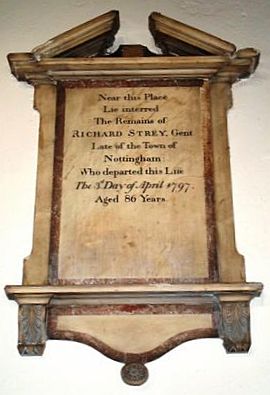 Near this Place
Lie interred
The Remains of
RICHARD STREY, Gent
Late of the Town of
Nottingham
Who departed this Life
The 3d. Day of April 1797.
Aged 86 Years.